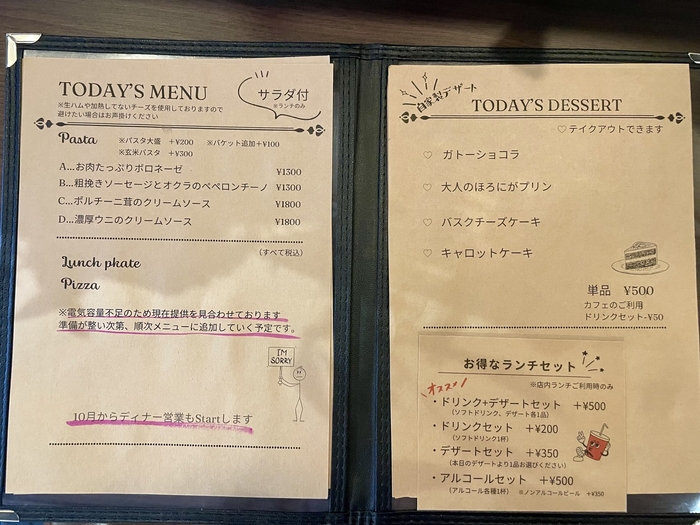 TODAY'S MENU
※生ハムや加熱してないチーズを使用しておりますので
避けたい場合はお声掛けください
サラダ付
※ランチのみ
Pasta ※パスタ大盛 +¥200 ※バケット追加+¥100
※玄米パスタ +¥300
A...お肉たっぷりボロネーゼ ¥1300
B...粗挽きソーセージとオクラのペペロンチーノ ¥1300
C...ポルチーニ茸のクリームソース ¥1800
D...濃厚ウニのクリームソース ¥1800
(すべて税込)
Lunch pkate
Pizza
※電気容量不足のため現在提供を見合わせております
準備が整い次第、順次メニューに追加していく予定です。
I'M
SORRY
10月からディナー営業もStartします
自家製デザート
TODAY'S DESSERT
♡テイクアウトできます
♡ ガトーショコラ
♡ 大人のほろにがプリン
♡ バスクチーズケーキ
♡ キャロットケーキ
単品 ¥500
カフェのご利用
ドリンクセット-¥50
お得なランチセット
※店内ランチご利用時のみ
オススメ!
・ドリンク+デザートセット +¥500
(ソフトドリンク、デザート各1品)
・ドリンクセット +¥200
(ソフトドリンク1杯)
・デザートセット +¥350
(本日のデザートより1品お選びください)
・アルコールセット +¥500
(アルコール各種1杯) ※ノンアルコールビール +¥350